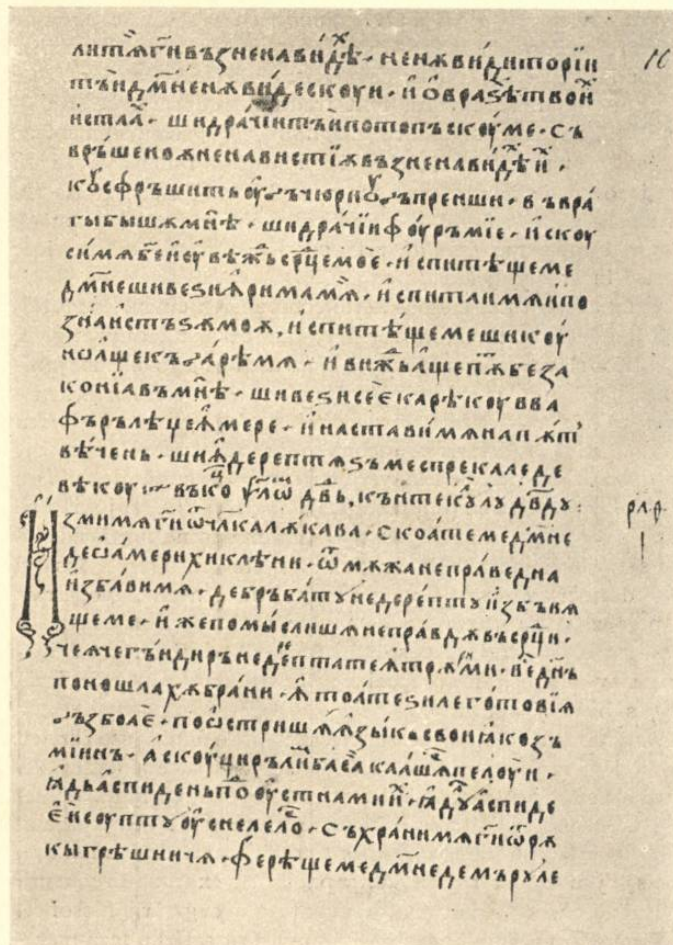 литѧ г҃и възненавидѣⷯ · ненѫвидиторїи
тъи дм҃не ненѫвидескоуи · и ѻ вразѣⷯ твоиⷯ
истааⷯ · ши драчїи тъи потопъскоуме · съ
връшеноѫ ненавистїѫ възненавидѣⷯ иⷯ ·
коу сфръшитъ оуръчюрⷩ оуръ пре иши · въ вра
гы бышѫ мнѣ · ши драчїи фоуръ мїе · искоу
си мѧ бж҃е и оувѣжⷣь срⷣце мое · испитѣще ме
дм҃не ши везⷩ ѫрима мѣ · испитаи мѧ и по
знаи стъѕѫ моѫ, испитѣще ме ши коу
ноаще кърарѣ мѧ · и вижⷣь аще пѫⷮ беза
конїа въ мнѣ · ши везⷩ се е карѣ коу ва
фърълѣџе ѫ мере · и настави мѧ на пѫтⷯ
вѣчень · ши ѫдерептѧѕъ ме спре кале де
вѣкоу ⁘ въ кѡⷩ ѱлѡⷨ дв҃дь, кънтекулу дв҃ду:
Изми мѧ г҃и ѿ чл҃ка лѫкава · скоате ме дм҃не
де ѡамери хиклѣни · ѿ мѫжа неправедна
избави мѧ · де бръбату недерепту избъвѧ
ще ме · иже помыслишѧ неправдѫ въ срⷣци ·
чеѧ че гъндиръ недерептате ѫтрѫ инимⷨ · въ с днь
поношлахѫ брани · ѫ тоате ѕиле готовїѧ
ръзбоае · поѡстришѧ ѧзыкь свои ꙗко зъ
мїинъ · аскоуциръ лимба са ка ла шарпелоуи ·
ꙗдь аспидень поⷣ оустнами иⷯ · ꙗдул аспиде
еи соупту оуснеле лоⷬ · съхрани мѧ г҃и ѿ рѫ
кы грѣшничѧ · ферѣще ме дм҃не де мъруле